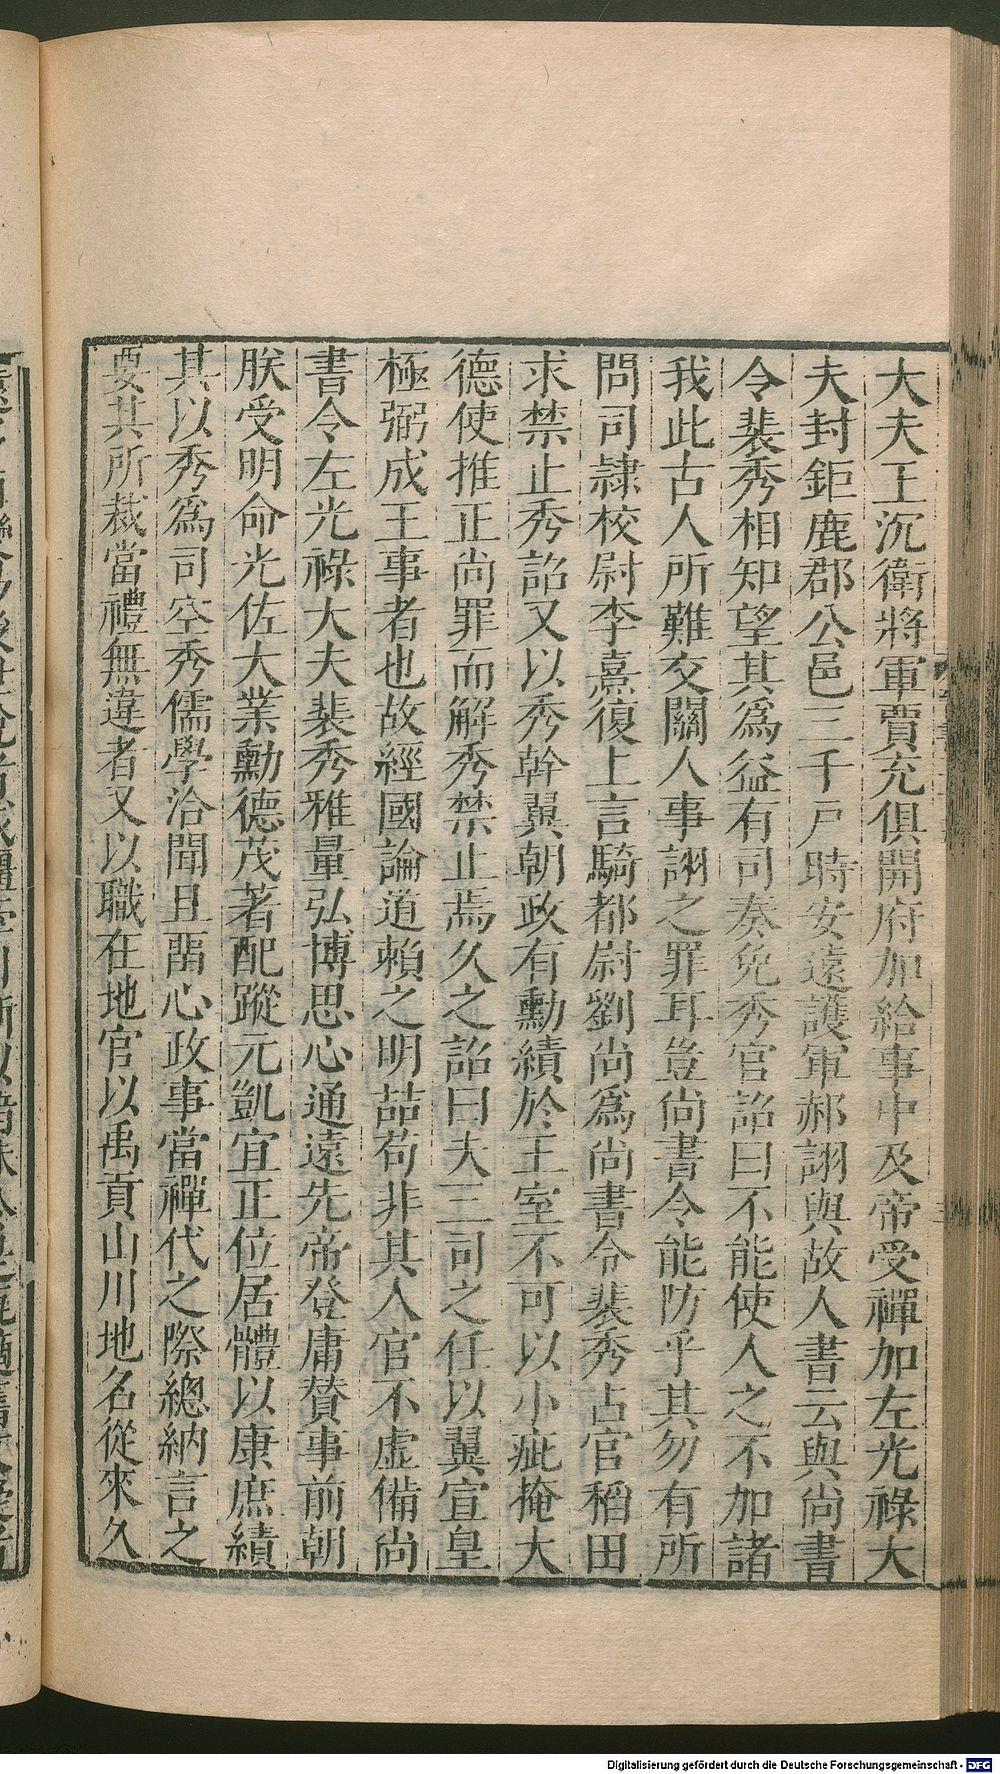 大夫王沉衛將軍賈充俱開府加給事中及帝受禪加左光祿大
夫封鉅鹿郡公邑三千戶時安遠護軍郝詡與故人書云與尚書
令裴秀相知望其爲益有司奏免秀官詔曰不能使人之不加諸
我此古人所難交關人事詡之罪耳豈尚書令能防乎其勿有所
問司隷校尉李熹復上言騎都尉劉尚爲尚書令裴秀占官稻田
求禁止秀詔又以秀幹翼朝政有勳績於王室不可以小疵掩大
德使推正尚罪而解秀禁止焉久之詔曰夫三司之任以翼宣皇
極弼成王事者也故經國論道賴之明喆苟非其人官不虛備尚
書令左光祿大夫裴秀雅量弘博思心通遠先帝登庸贊事前朝
朕受明命光佐大業勳德茂著配蹤元凱宜正位居體以康庶績
其以秀爲司空秀儒學洽聞且畱心政事當禪代之際總納言之
要其所裁當禮無違者又以職在地官以禹貢山川地名從來久
Digitalisierung gefördert durch die Deutsche Forschungsgemeinschaft - DFG